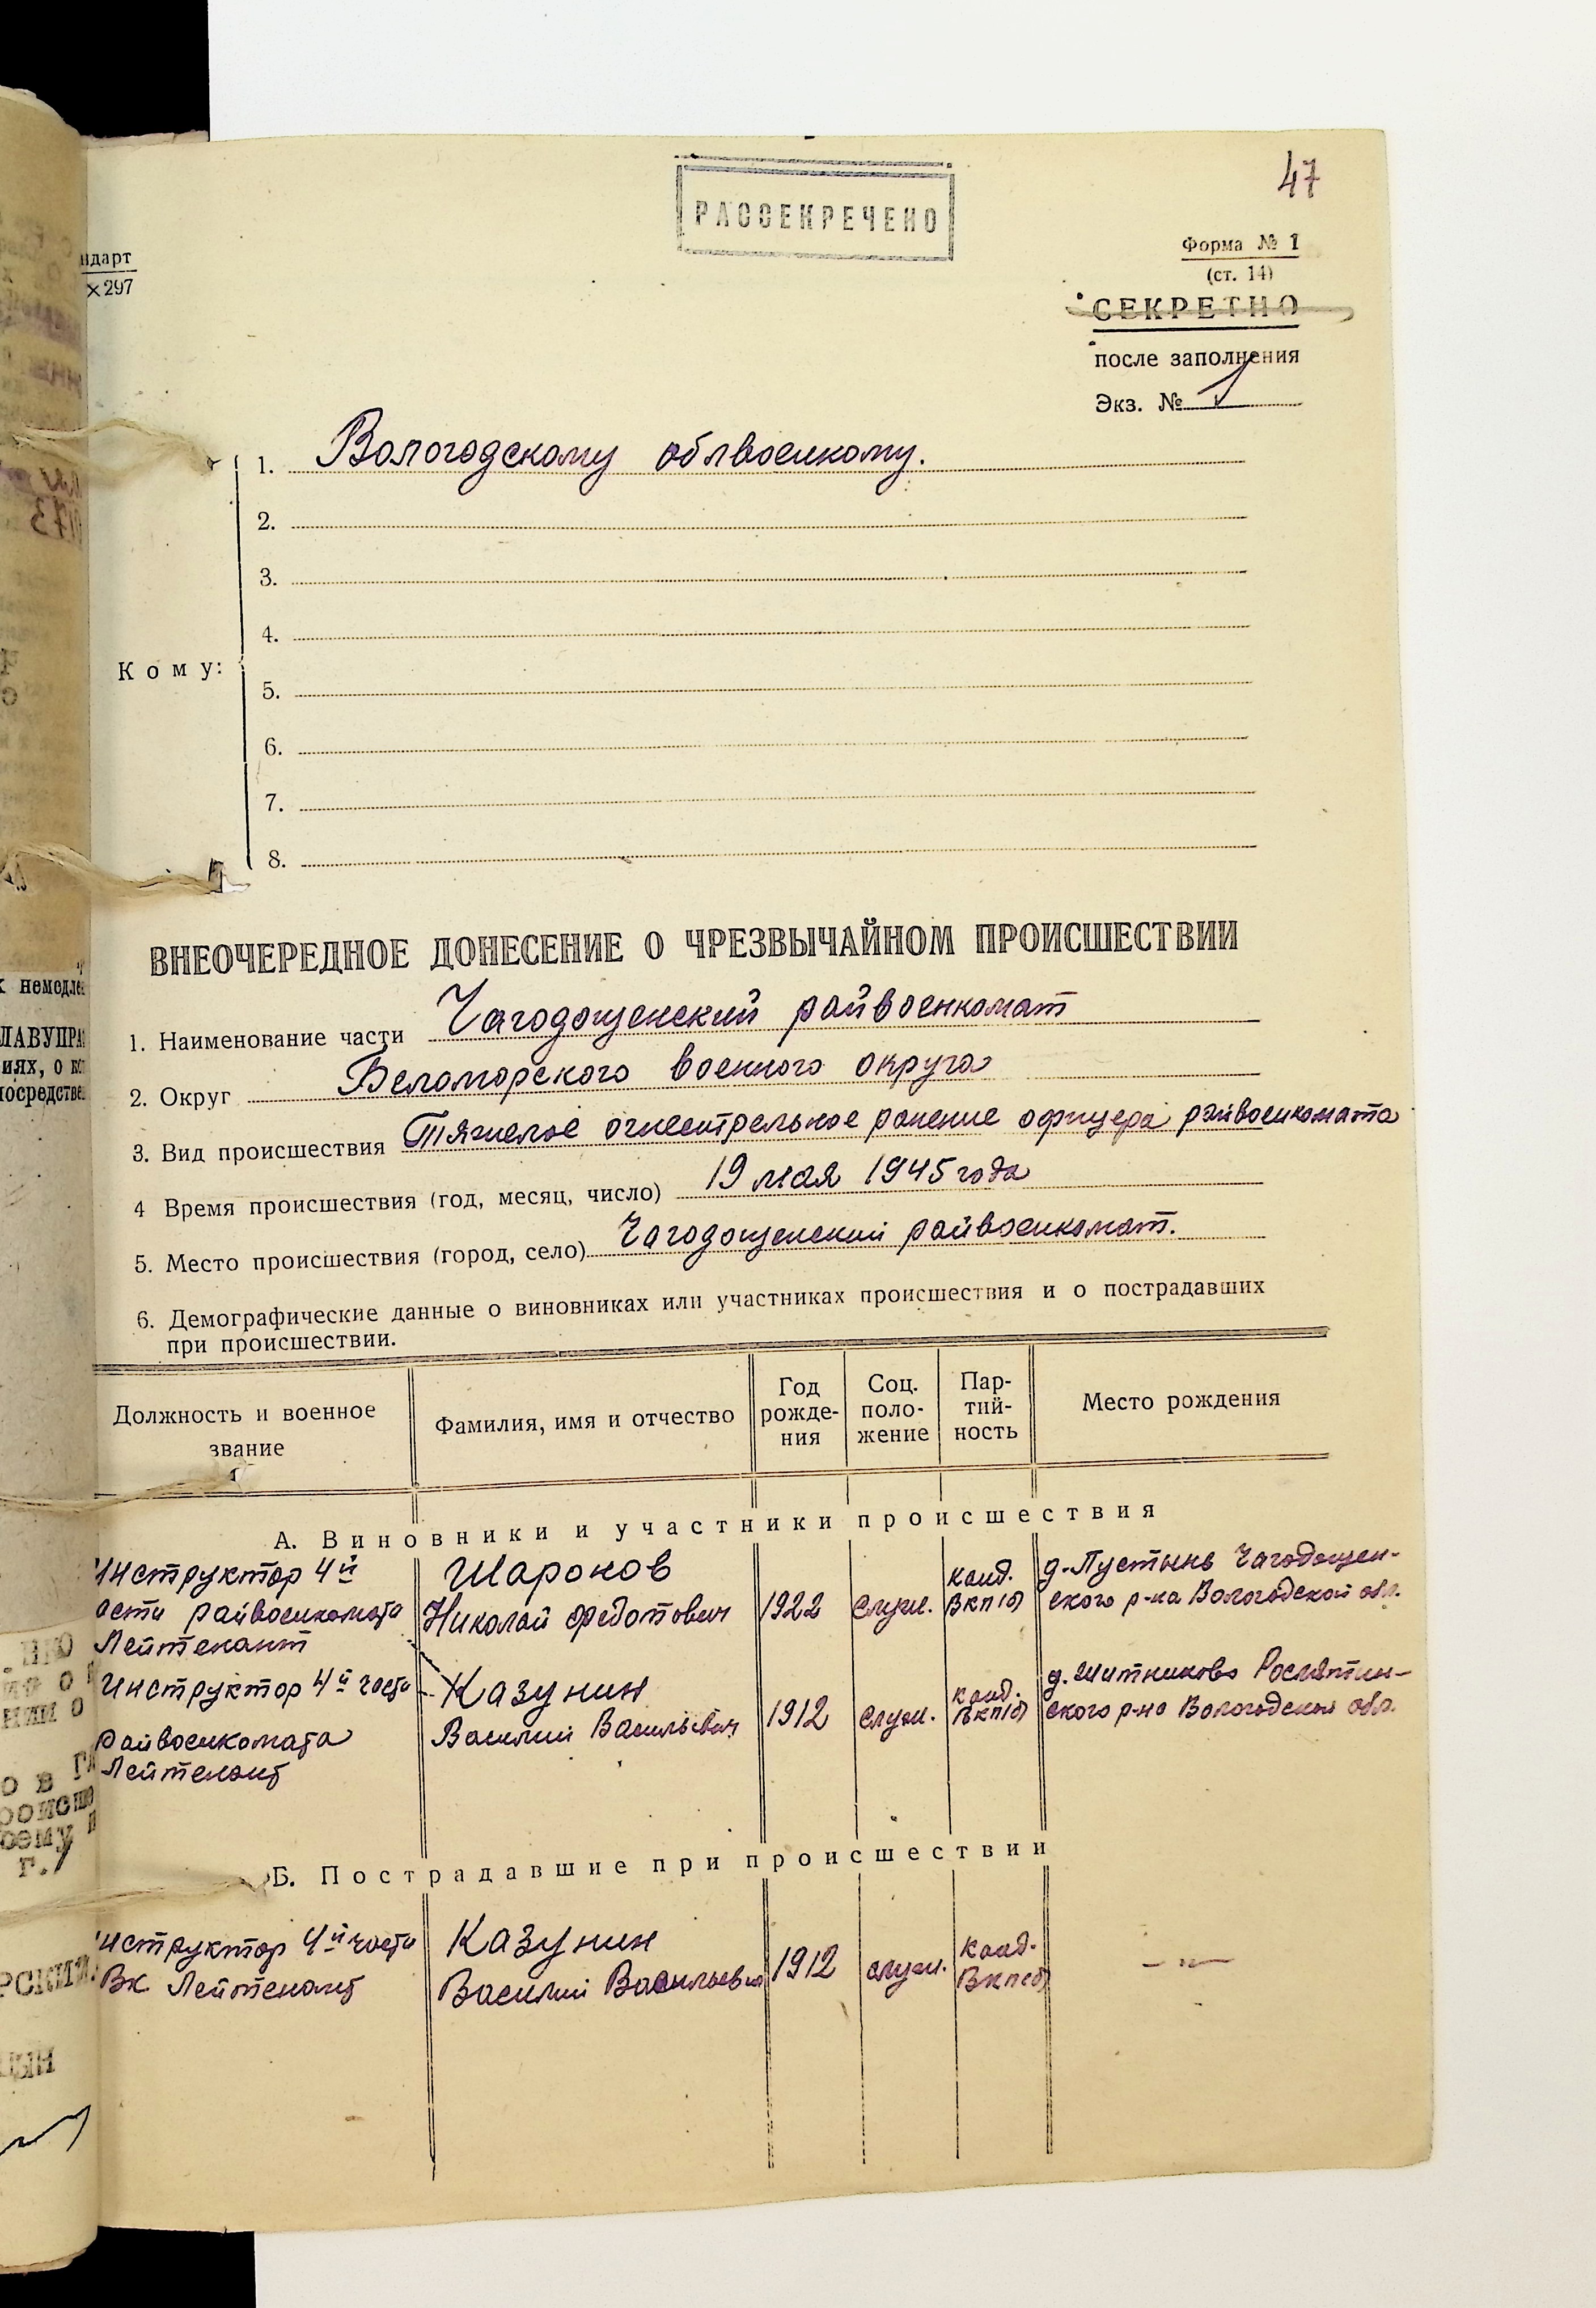 47
РАССЕКРЕЧЕНО
ндарт
×297
Форма № 1
(ст. 14)
СЕКРЕТНО
после заполнения
Экз. № 1
Кому:
1. Вологодскому облвоенкому.
2.
3.
4.
5.
6.
7.
8.
ВНЕОЧЕРЕДНОЕ ДОНЕСЕНИЕ О ЧРЕЗВЫЧАЙНОМ ПРОИСШЕСТВИИ
1. Наименование части Чагодощенский райвоенкомат
2. Округ Беломорского военного округа
3. Вид происшествия Тяжелое огнестрельное ранение офицера райвоенкомата
4 Время происшествия (год, месяц, число) 19 мая 1945 года
5. Место происшествия (город, село) Чагодощенский райвоенкомат.
6. Демографические данные о виновниках или участниках происшествия и о пострадавших
при происшествии.
Должность и военное
звание
Фамилия, имя и отчество
Год
рожде-
ния
Соц.
поло-
жение
Пар-
тий-
ность
Место рождения
А. Виновники и участники происшествия
Инструктор 4й
асти райвоенкомата
Лейтенант
Шаронов
Николай Федотович
1922
служ.
канд.
ВКП(б)
д. Пустынь Чагодощен-
ского р-на Вологодской обл.
Инструктор 4й части
райвоенкомата
Лейтенант
Казунин
Василий Васильевич
1912
служ.
канд.
ВКП(б)
д. Шитниково Рослятин-
ского р-на Вологодской обл.
Б. Пострадавшие при происшествии
нструктор 4й части
ВК Лейтенант
Казунин
Василий Васильевич
1912
служ.
канд.
ВКП(б)
-"-
к немедле
ЛАВУПРА
иях, о ко
посредстве